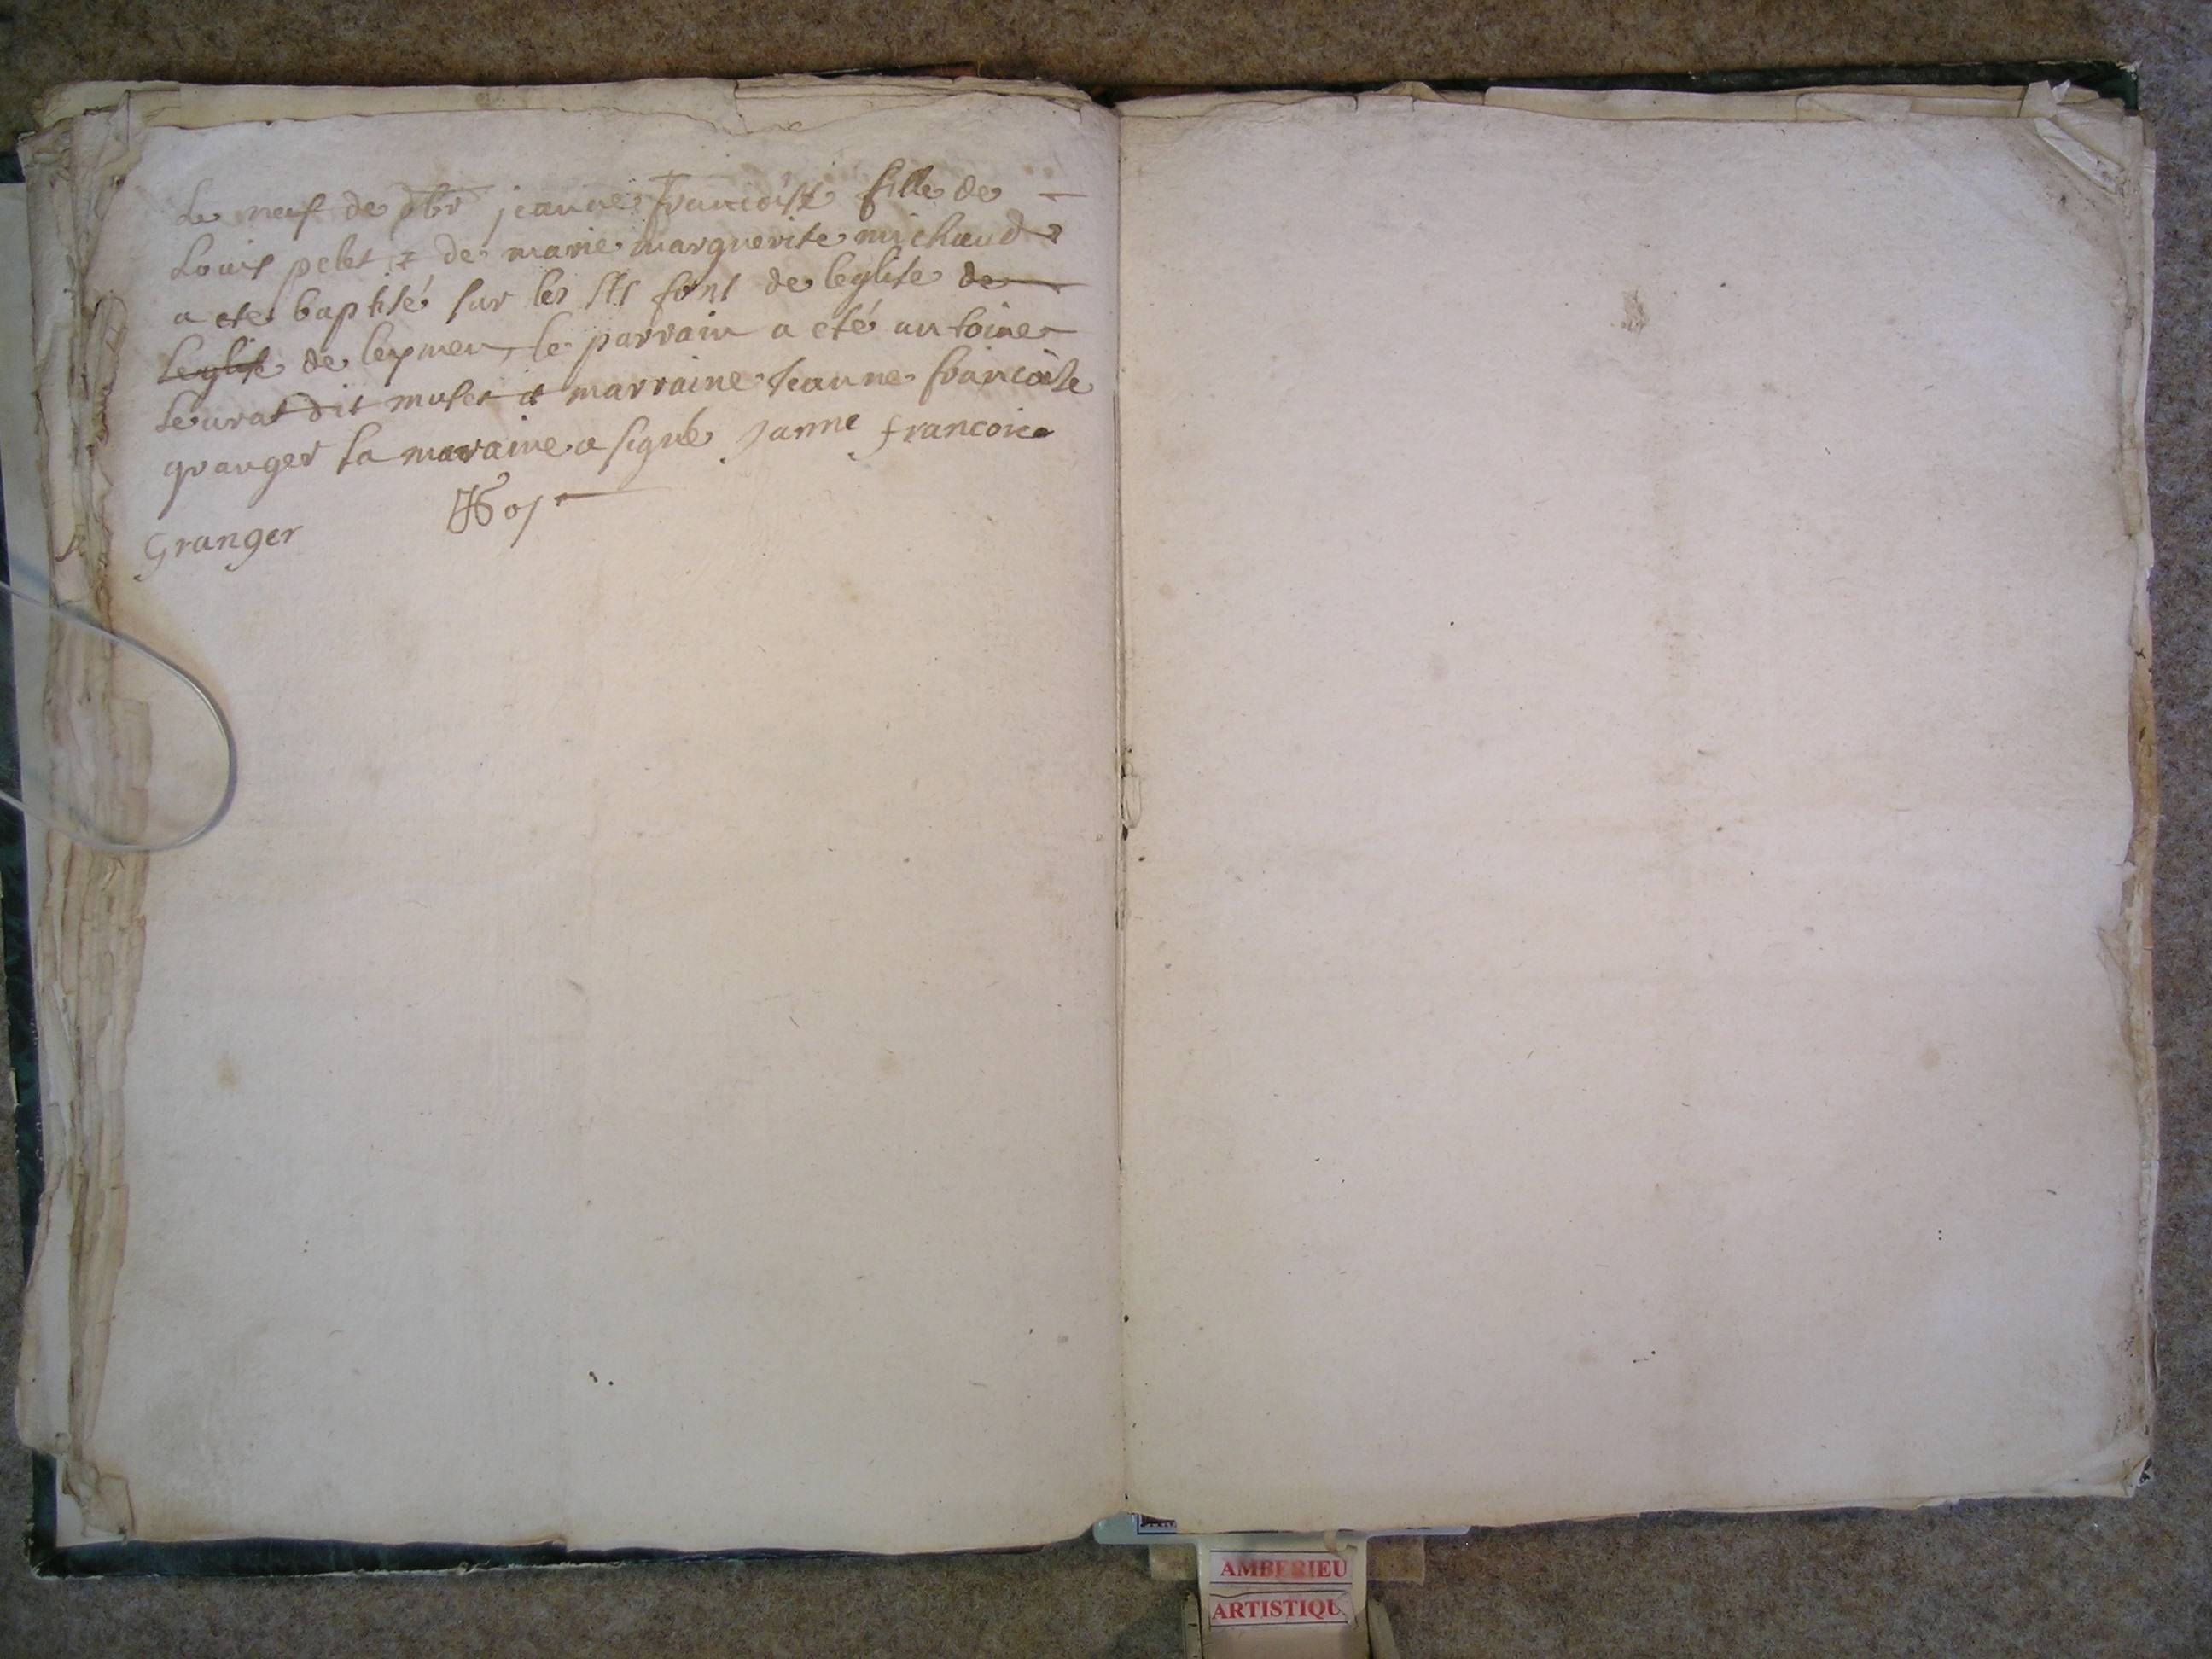 Le neuf de jeanne francoise fille de
Louis pelet & de marie marguerite michaud
a eté baptisé sur les Sts font de leglise de
leglise de leymen, le parrain a eté antoine
dit et marraine Jeanne francoise
granger la marraine a signé Janne francoise
Granger
AMBERIEU
ARTISTIQU